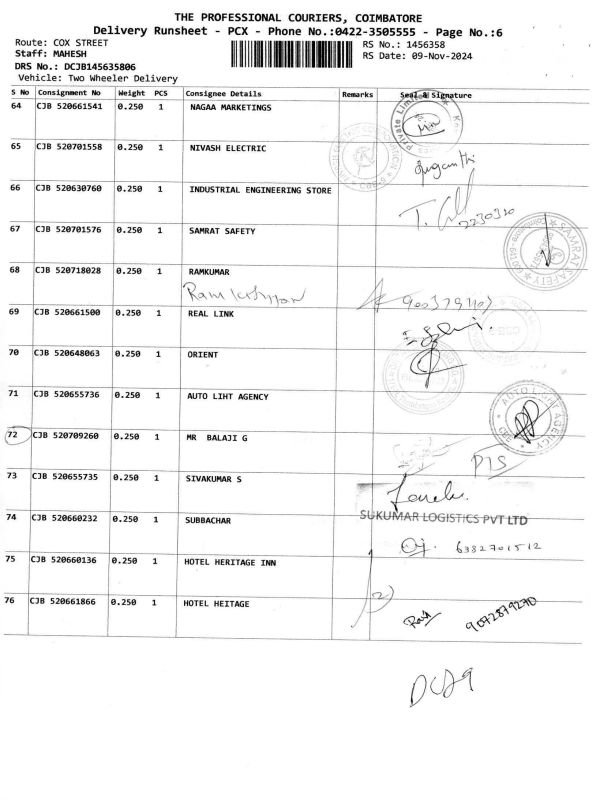 THE PROFESSIONAL COURIERS, COIMBATORE
Delivery Runsheet - PCX - Phone No.:0422-3505555 - Page No.:6
Route: COX STREET
RS No.: 1456358
Staff: MAHESH
RS Date: 09-Nov-2024
DRS No.: DCJB145635806
Vehicle: Two Wheeler Delivery
S No Consignment No Weight PCS Consignee Details Remarks Seal & Signature
64 CJB 520661541 0.250 1 NAGAA MARKETINGS
65 CJB 520701558 0.250 1 NIVASH ELECTRIC
66 CJB 520630760 0.250 1 INDUSTRIAL ENGINEERING STORE
67 CJB 520701576 0.250 1 SAMRAT SAFETY
68 CJB 520718028 0.250 1 RAMKUMAR
69 CJB 520661500 0.250 1 REAL LINK
70 CJB 520648063 0.250 1 ORIENT
71 CJB 520655736 0.250 1 AUTO LIHT AGENCY
72 CJB 520709260 0.250 1 MR BALAJI G
73 CJB 520655735 0.250 1 SIVAKUMAR S
SUKUMAR LOGISTICS PVT LTD
74 CJB 520660232 0.250 1 SUBBACHAR
6382701512
75 CJB 520660136 0.250 1 HOTEL HERITAGE INN
76 CJB 520661866 0.250 1 HOTEL HEITAGE
9092879270